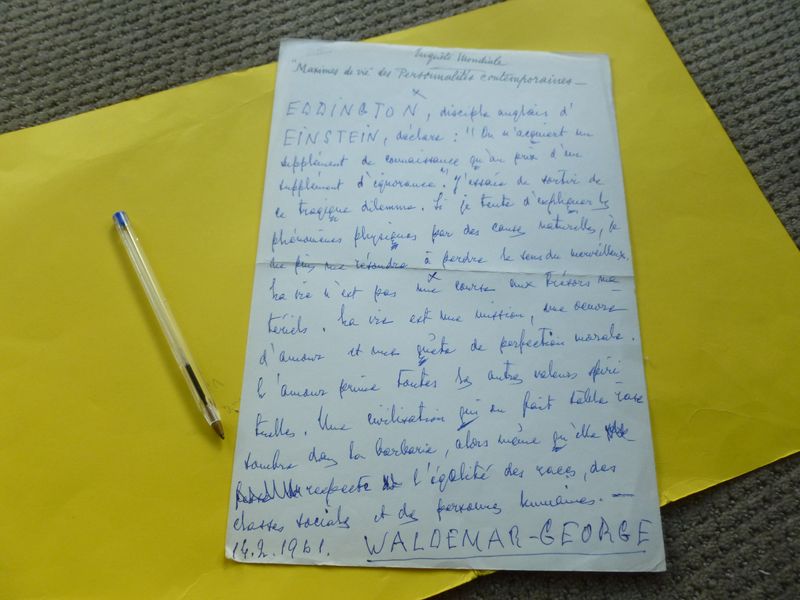 Enquête Mondiale
"Maximes de vie" des Personnalités contemporaines —
EDDINGTON, disciple anglais d'
EINSTEIN, déclare : "On n'acquiert un
supplément de connaissance qu'au prix d'un
supplément d'ignorance." J'essaie de sortir de
ce tragique dilemme. Si je tente d'expliquer les
phénomènes physiques par des causes naturelles, je
ne puis me résoudre à perdre le sens du merveilleux.
La vie n'est pas une course aux trésors ma-
tériels. La vie est une mission, une oeuvre
d'amour et une quête de perfection morale.
L'amour prime toutes les autres valeurs spiri
tuelles. Une civilisation qui en fait table rase
sombre dans la barbarie, alors même qu'elle
respecte l'égalité des races, des
classes sociales et des personnes humaines. —
14.2.1961. WALDEMAR-GEORGE